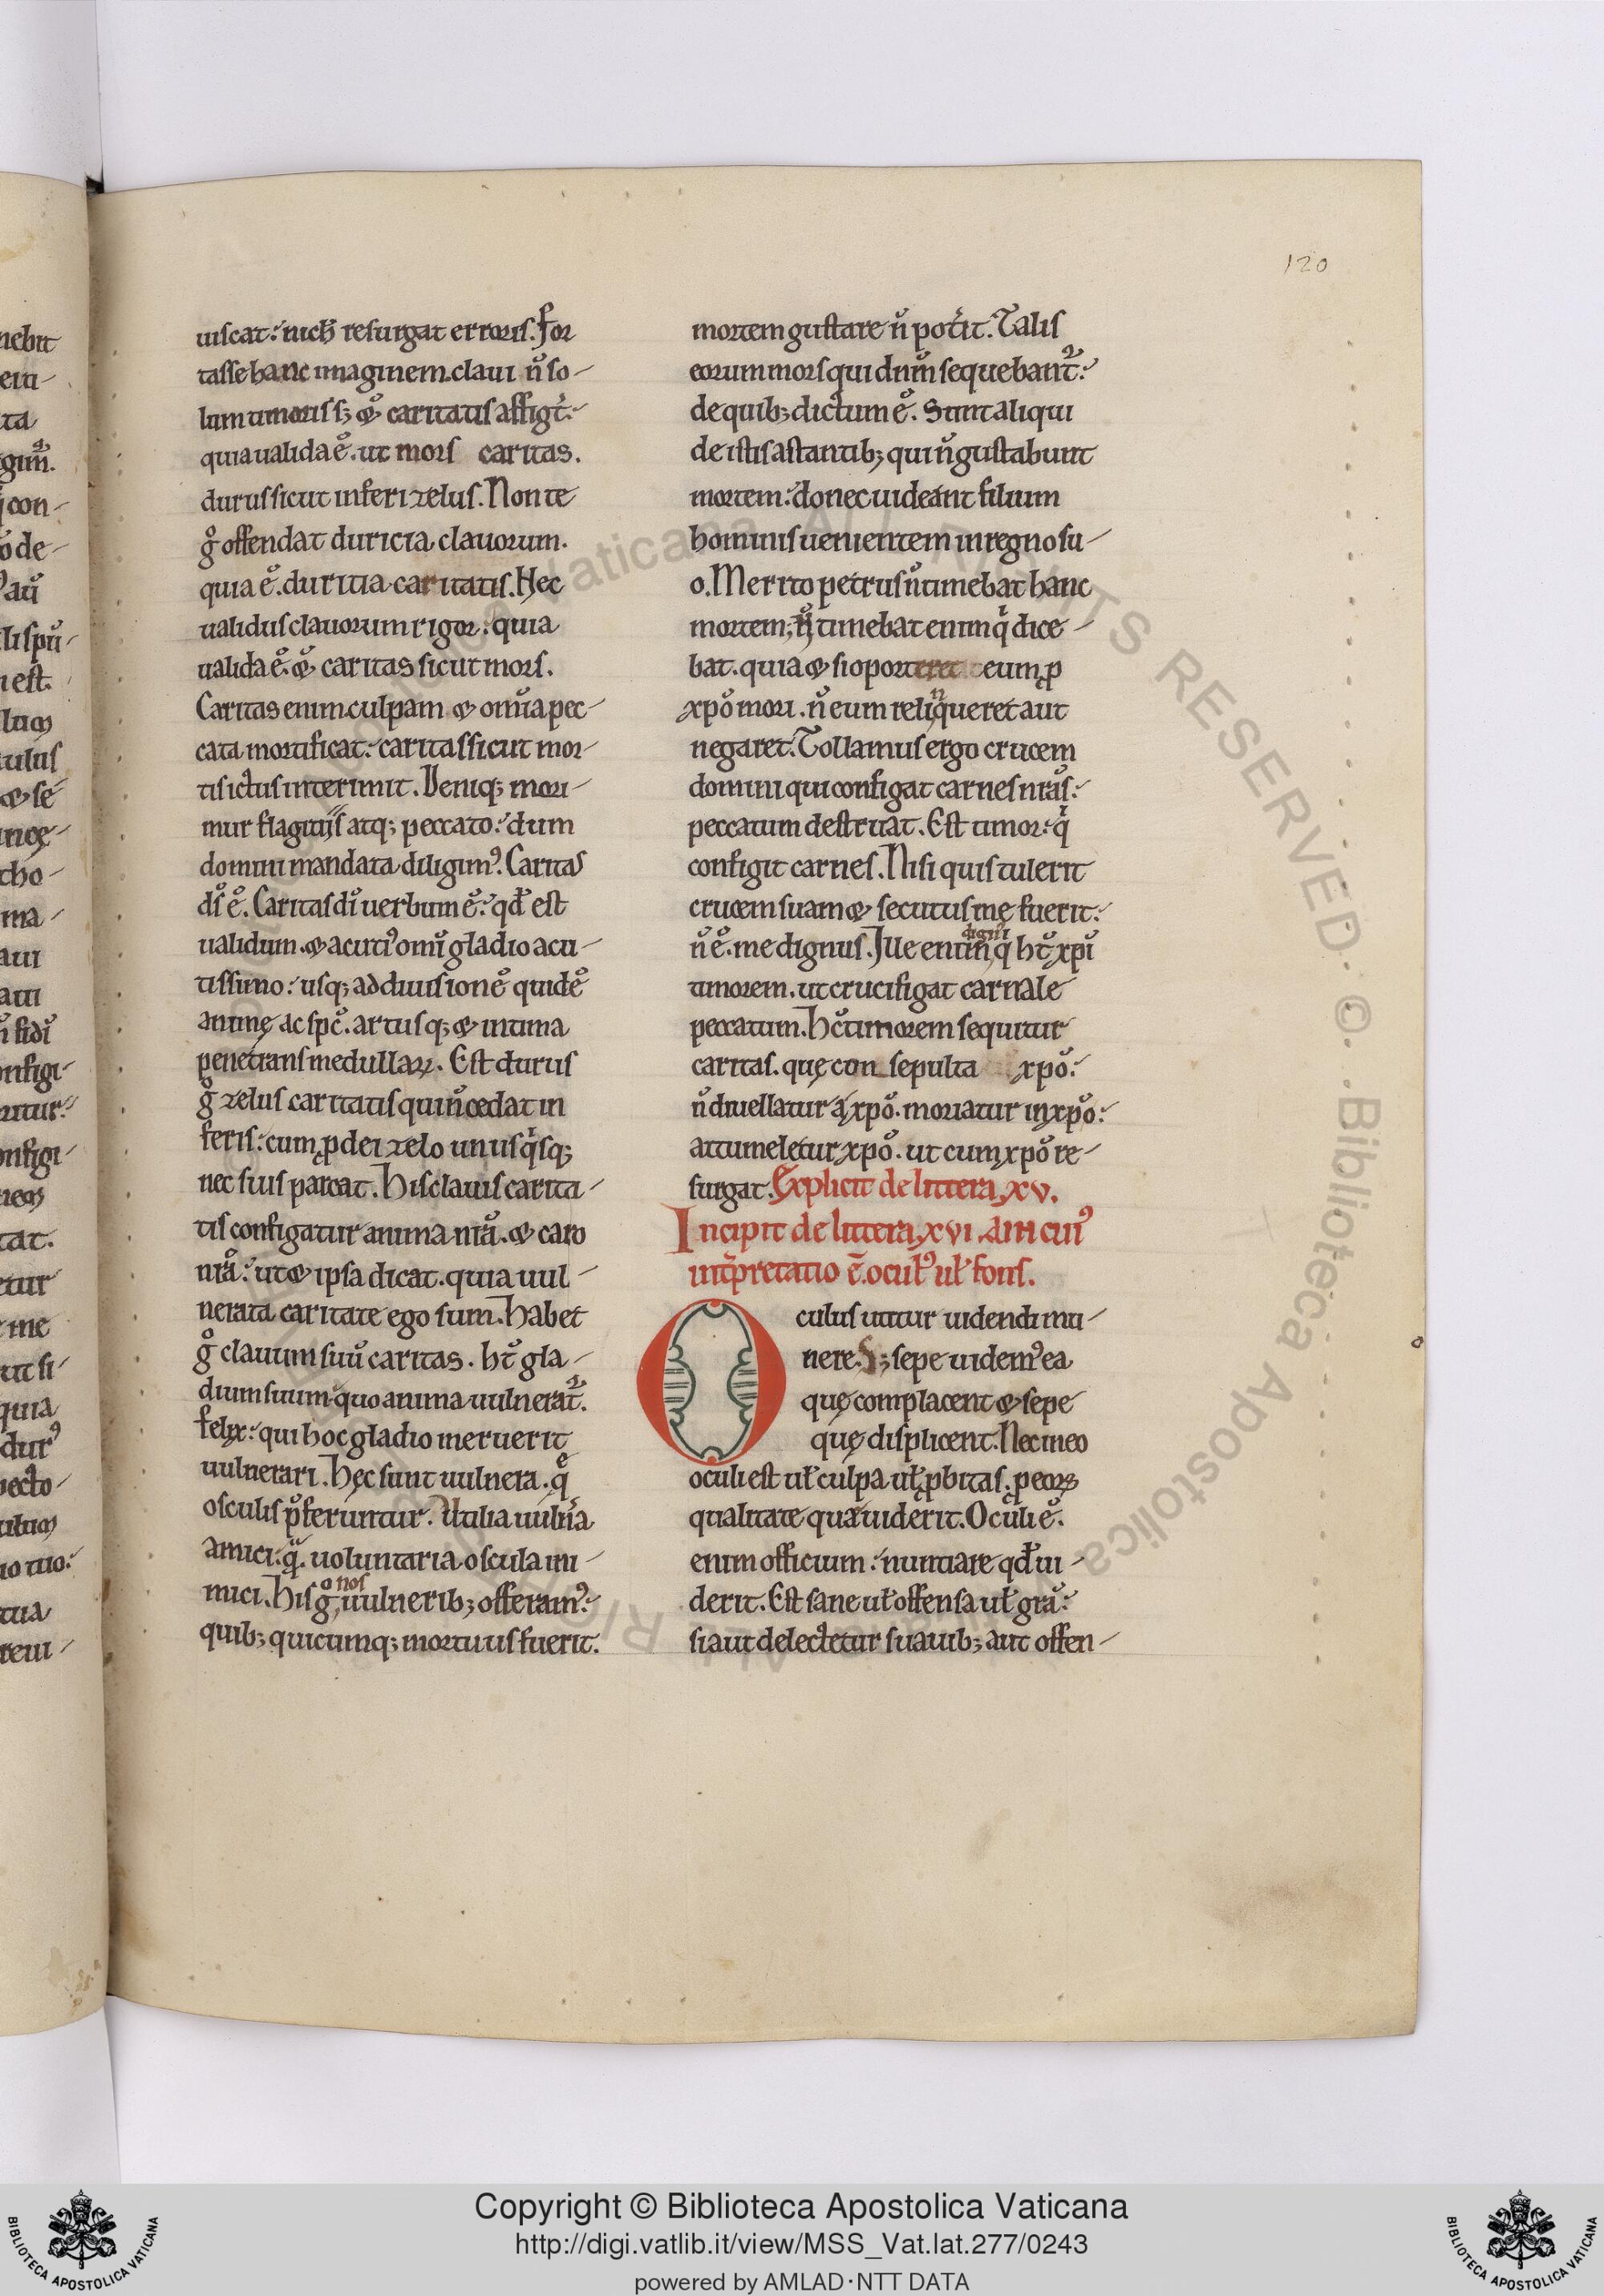 120
uiscat. nich̄ resurgat erroris. For
tasse hanc imaginem claui n̄ so-
lum timoris s; & caritatis affigt̄.
quia ualida ē. ut mors caritas.
durus sicut inferi zelus. Non te
gͦ offendat duricia clauorum.
quia ē. duritia caritatis. Hec
ualidus clauorum rigor. quia
ualida ē. & caritas sicut mors.
Caritas enim culpam & om̄ia pec-
cata mortificat. caritas sicut mor-
tis ictus interimit. Deniq; mori-
mur flagitiis atq; peccato. dum
domini mandata diligim⁹. Caritas
dī ē. Caritas dī uerbum ē. qđ est
ualidum. & acuti⁹ om̄i gladio acu-
tissimo. usq; ad diuisionē quidē
animę ac spc̄. artusq; & intima
penetrans medullaꝝ. Est durus
gͦ zelus caritatis qui n̄ cedat in
feris. cum ꝓ dei zelo unusqͥsq;
nec suis parcat. His clauis carita-
tis configatur anima nrā. & caro
nrā. ut & ipsa dicat. quia uul-
nerata caritate ego sum. Habet
gͦ clauum suū caritas. ht̄ gla-
dium suum quo anima uulnerat᷑.
felix. qui hoc gladio meruerit
uulnerari. Hęc sunt uulnera. qͤ
osculis p̄feruntur. Utilia uuln̄a
amici. qͣ. uoluntaria oscula ini-
mici. His gͦ nos uulnerib; offeram⁹.
quib; quicumq; mortuus fuerit.
mortem gustare n̄ pot̄it. Talis
eorum mors qui dnm̄ sequebant᷑.
de quib; dictum ē. Sunt aliqui
de istis astantib; qui n̄ gustabunt
mortem. donec uideant filium
hominis uenientem in regno su-
o. Merito petrus n̄ timebat hanc
mortem. n̄ timebat enim qͥ dice-
bat. quia & si oporteret eum ꝓ
xpō mori. n̄ eum relinqueret aut
negaret. Tollamus ergo crucem
domini qui configat carnes nrās.
peccatum destruat. Est timor. qͥ
configit carnes. Nisi quis tulerit
crucem suam & secutus me fuerit.
n̄ ē. me dignus. Ille enim dignus qͥ ht̄ xpī
timorem. ut crucifigat carnale
peccatum. Hc̄ timorem sequitur
caritas. quę con sepulta xpō.
n̄ diuellatur a xpō. moriatur in xpō.
attumeletur xpō. ut cum xpō re-
surgat. Explicit de littera xv.
Incipit de littera xvi. ain cui⁹
int̄pretatio ē. ocul⁹ uł fons.
Oculus utitur uidendi mu-
nere. S; sepe uidem⁹ ea
quę complacent & sepe
quę displicent. Nec in eo
oculi est uł culpa uł ꝓbitas. ꝓ eoꝝ
qualitate quā uiderit. Oculi ē.
enim officium. nuntiare qđ ui-
derit. Est sane uł offensa uł grā.
si aut delectetur suauib; aut offen-
Copyright © Biblioteca Apostolica Vaticana
http://digi.vatlib.it/view/MSS_Vat.lat.277/0243
powered by AMLAD·NTT DATA